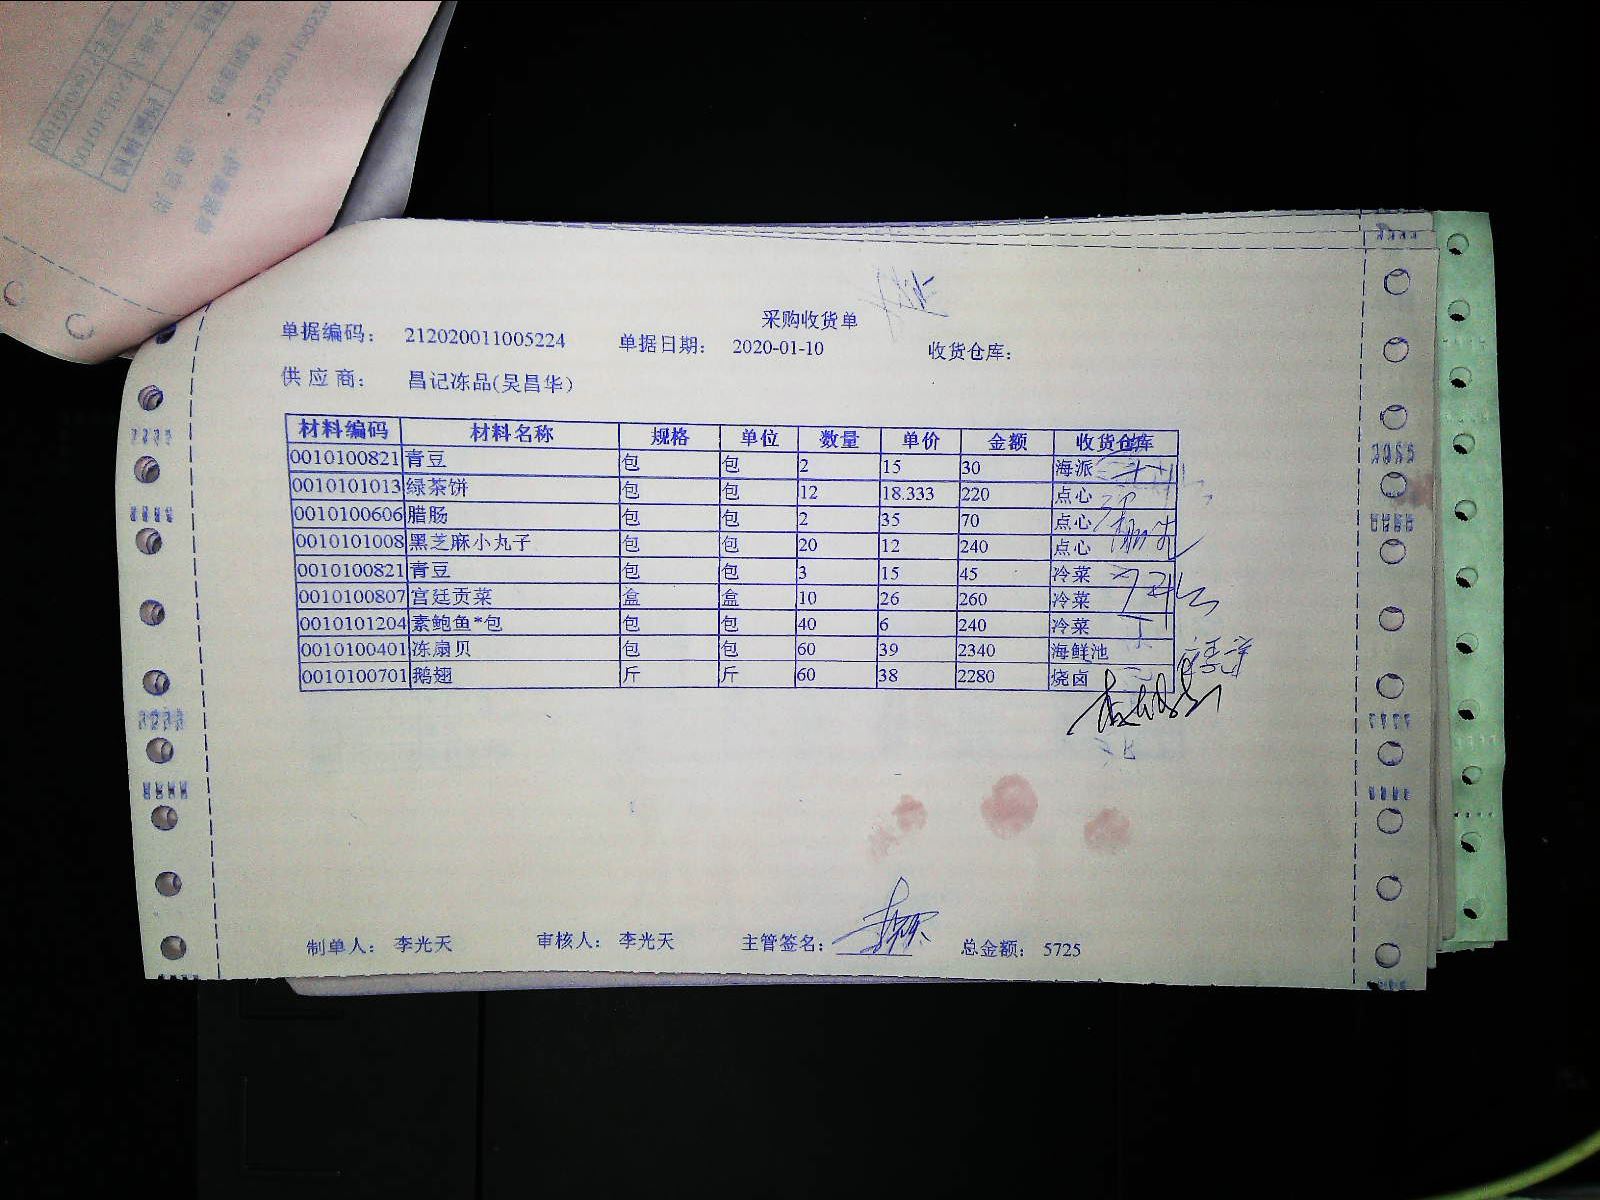 采购收货单
单据编码: 212020011005224 单据日期: 2020-01-10 收货仓库:
供应商: 昌记冻品(吴昌华)
材料编码 材料名称 规格 单位 数量 单价 金额 收货仓库
0010100821 青豆 包 包 2 15 30 海派
0010101013 绿茶饼 包 包 12 18.333 220 点心
0010100606 腊肠 包 包 2 35 70 点心
0010101008 黑芝麻小丸子 包 包 20 12 240 点心
0010100821 青豆 包 包 3 15 45 冷菜
0010100807 宫廷贡菜 盒 盒 10 26 260 冷菜
0010101204 素鲍鱼*包 包 包 40 6 240 冷菜
0010100401 冻扇贝 包 包 60 39 2340 海鲜池
0010100701 鹅翅 斤 斤 60 38 2280 烧卤
制单人: 李光天 审核人: 李光天 主管签名: 总金额: 5725